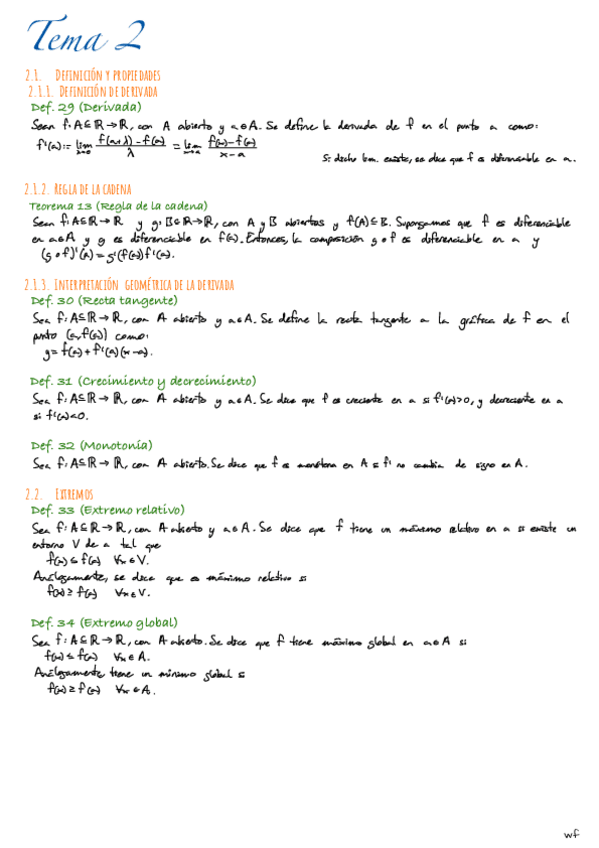 Tema 2
2.1. Definición y propiedades
2.1.1. Definición de derivada
Def. 29 (Derivada)
Sean f: A⊆ℝ→ℝ, con A abierto y a∈A. Se define la derivada de f en el punto a como:
f'(a):= lim_{λ→0} f(a+λ)-f(a)/λ = lim_{x→a} f(x)-f(a)/x-a
Si dicho lim. existe, se dice que f es diferenciable en a.
2.1.2. Regla de la cadena
Teorema 13 (Regla de la cadena)
Sean f: A⊆ℝ→ℝ y g: B⊆ℝ→ℝ, con A y B abiertos y f(A)⊆B. Supongamos que f es diferenciable
en a∈A y g es diferenciable en f(a). Entonces, la composición g∘f es diferenciable en a y
(g∘f)'(a)=g'(f(a))f'(a).
2.1.3. Interpretación geométrica de la derivada
Def. 30 (Recta tangente)
Sea f: A⊆ℝ→ℝ, con A abierto y a∈A. Se define la recta tangente a la gráfica de f en el
punto (a,f(a)) como:
y=f(a)+f'(a)(x-a).
Def. 31 (Crecimiento y decrecimiento)
Sea f: A⊆ℝ→ℝ, con A abierto y a∈A. Se dice que f es creciente en a si f'(a)>0, y decreciente en a
si f'(a)<0.
Def. 32 (Monotonía)
Sea f: A⊆ℝ→ℝ, con A abierto. Se dice que f es monótona en A si f' no cambia de signo en A.
2.2. Extremos
Def. 33 (Extremo relativo)
Sea f: A⊆ℝ→ℝ, con A abierto y a∈A. Se dice que f tiene un máximo relativo en a si existe un
entorno V de a tal que
f(x)≤f(a) ∀x∈V.
Análogamente, se dice que es máximo relativo si
f(x)≥f(a) ∀x∈V.
Def. 34 (Extremo global)
Sea f: A⊆ℝ→ℝ, con A abierto. Se dice que f tiene máximo global en a∈A si
f(x)≤f(a) ∀x∈A.
Análogamente tiene un mínimo global si
f(x)≥f(a) ∀x∈A.
wf